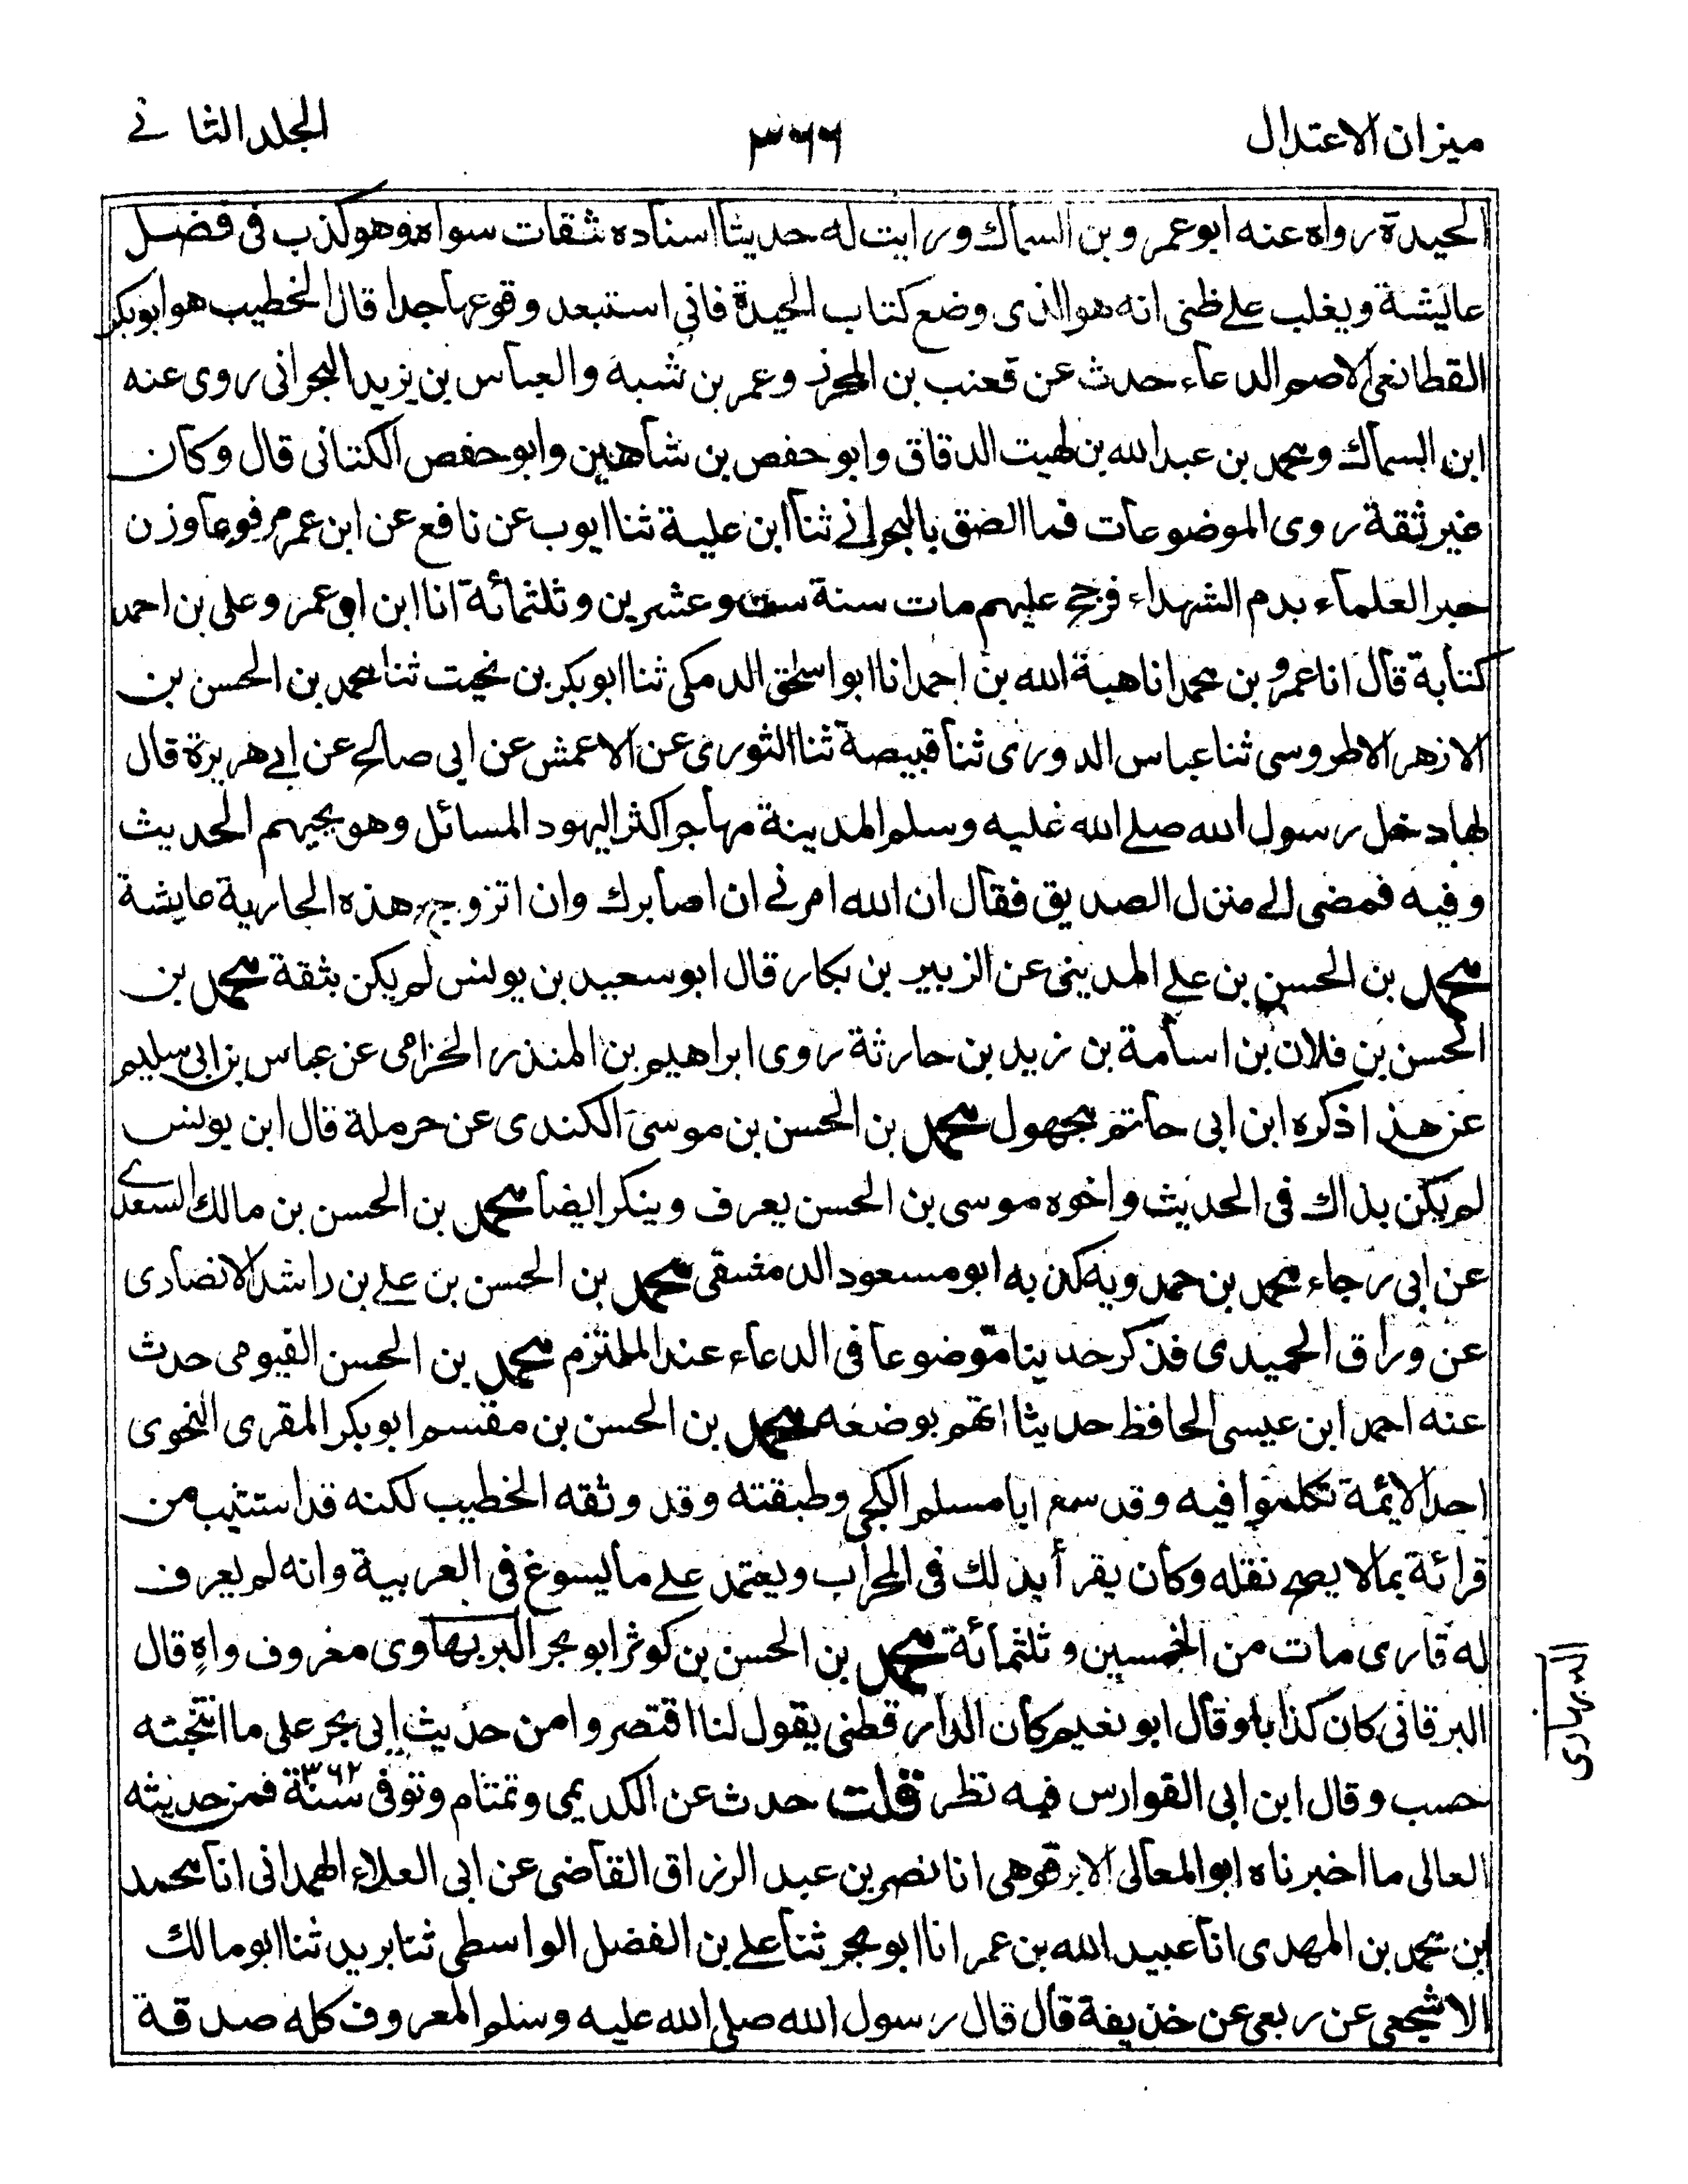 ميزان الاعتدال
٣٦٦
الجلد الثاني
الحيدة رواه عنه ابو عمرو بن السماك ورايت له حديثا اسناده ثقات سواه وهو كذب فى فضل
عايشة ويغلب على ظنى انه هو الذى وضع كتاب الحيدة فانى استبعد وقوعها جدا قال الخطيب هو ابوبكر
الاصم الدعاء حدث عن قعنب بن المحرز وعمر بن شبة والعباس بن يزيد البحرانى روى عنه
ابن السماك ومحمد بن عبد الله بن الدقاق وابو حفص بن شاهين وابو حفص الكتانى قال وكان
غير ثقة روى الموضوعات فما الصق بالبحرانى ثنا ابن علية ثنا ايوب عن نافع عن ابن عمر مرفوعا وزن
حبر العلماء بدم الشهداء فرجح عليهم مات سنة ست وعشرين وثلثمائة انا ابن ابى عمر وعلى بن احمد
كتابة قال انا عمرو بن محمد انا هبة الله بن احمد انا ابو اسحق الدمكى ثنا ابو بكر بن نجيت ثنا محمد بن الحسن بن
الازهر الاطروسى ثنا عباس الدورى ثنا قبيصة ثنا الثورى عن الاعمش عن ابى صالح عن ابى هريرة قال
لما دخل رسول الله صلى الله عليه وسلم المدينة مهاجرا كثر اليهود المسائل وهو يجيبهم الحديث
وفيه فمضى الى منزل الصديق فقال ان الله امرنى ان اصابرك وان اتزوج هذه الجارية عايشة
محمد بن الحسن بن على المدينى عن الزبير بن بكار قال ابو سعيد بن يونس لم يكن بثقة محمد بن
الحسن بن فلان بن اسامة بن زيد بن حارثة روى ابراهيم بن المنذر الحزامى عن عباس بن ابى سليم
عن هذا ذكره ابن ابى حاتم مجهول محمد بن الحسن بن موسى الكندى عن حرملة قال ابن يونس
لم يكن بذاك فى الحديث واخوه موسى بن الحسن يعرف وينكر ايضا محمد بن الحسن بن مالك السعدى
عن ابى رجاء محمد بن حمدويه كذبه ابو مسعود الدمشقى محمد بن الحسن بن على بن راشد الانصارى
عن وراق الحميدى فذكر حديثا موضوعا فى الدعاء عند الملتزم محمد بن الحسن القيومى حدث
عنه احمد ابن عيسى الحافظ حديثا اتهم بوضعه محمد بن الحسن بن مقسم ابو بكر المقرى النحوى
احد الائمة تكلموا فيه وقد سمع ابا مسلم الكجى وطبقته وقد وثقه الخطيب لكنه قد استتيب من
قرائة بما لا يصح نقله وكان يقرأ بذلك فى المحراب ويعتمد على ما يسوغ فى العربية وانه لم يعرف
له قارى مات من الخمسين وثلثمائة محمد بن الحسن بن كوثر ابو بحر البربهاوى معروف واهٍ قال
البرقانى كان كذابا وقال ابو نعيم كان الدارقطنى يقول لنا اقتصروا من حديث ابى بحر على ما انتخبته
حسب وقال ابن ابى الفوارس فيه نظر قلت حدث عن الكديمى وتمتام وتوفى سنة ٣٦٢ فمن حديثه
العالى ما اخبرناه ابو المعالى الابرقوهى انا نصر بن عبد الرزاق القاضى عن ابى العلاء الهمدانى انا محمد
بن محمد بن المهدى انا عبيد الله بن عمر انا ابو بحر ثنا على بن الفضل الواسطى ثنا يزيد ثنا ابو مالك
الاشجعى عن ربعى عن حذيفة قال قال رسول الله صلى الله عليه وسلم المعروف كله صدقة
البربهارى